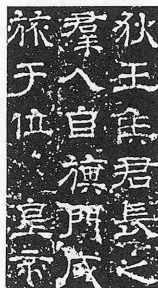 狄王侯君長之
羣入自旗門咸
旅于位皇帝